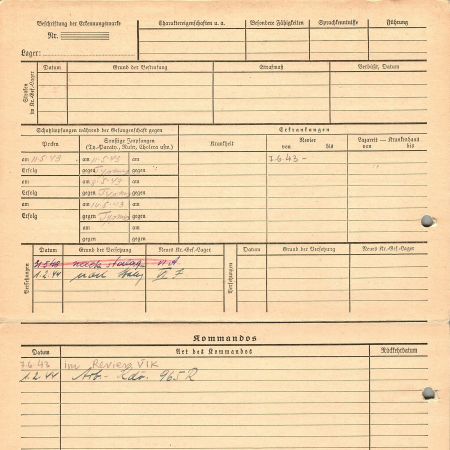 Beschriftung der Erkennungsmarke
Nr.
Lager:
Charaktereigenschaften u. a.
Besondere Fähigkeiten
Sprachkenntnisse
Führung
Strafen im Kr.-Gef.-Lager
Datum
Grund der Bestrafung
Strafmaß
Verbüßt, Datum
Schutzimpfungen während der Gefangenschaft gegen
Erkrankungen
Pocken
Sonstige Impfungen
(Ty.-Paraty., Ruhr, Cholera usw.)
Krankheit
Revier
von bis
Lazarett — Krankenhaus
von bis
am 11.5.43 am 11.5.43 am 7.6.43 -
Erfolg gegen gegen
am am am
Erfolg gegen gegen
am am am
Erfolg gegen gegen
am am
gegen gegen
Versetzungen
Datum
Grund der Versetzung
Neues Kr.-Gef.-Lager
Versetzungen
Datum
Grund der Versetzung
Neues Kr.-Gef.-Lager
nach Stalag VI A
1.2.44 nach Stalag VI F
Kommandos
Datum
Art des Kommandos
Rückkehrdatum
7.6.43 im Reviere VI K
1.2.44 Arb.-Kdo. 965 R